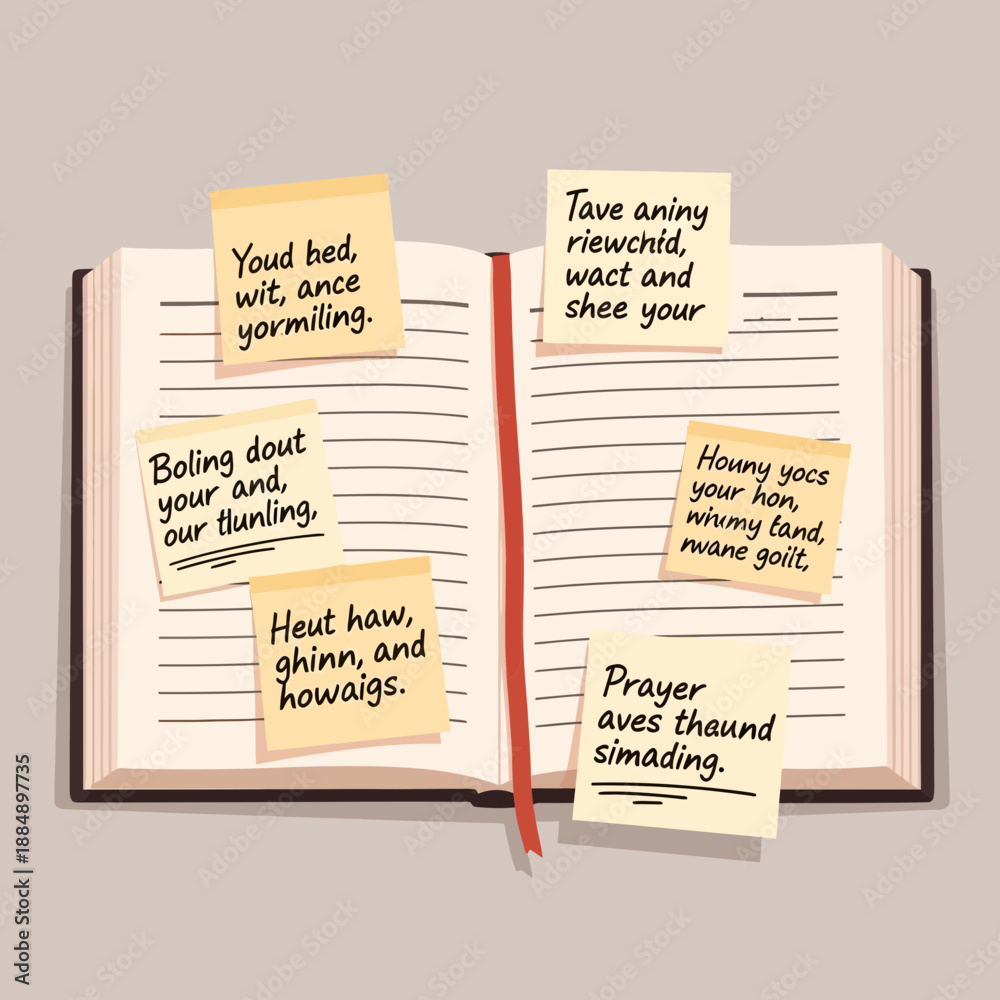 Youd bed,
wit, ance
yormiling.
Boling dout
your and,
our thunling,
Heut haw,
ghinn, and
howaigs.
Tave aniny
riewchid,
wact and
shee your
Houny yocs
your hon,
whumy tand,
nwane goilt,
Prayer
aves thaund
simading.
Adobe Stock | #1884897735
Adobe Stock